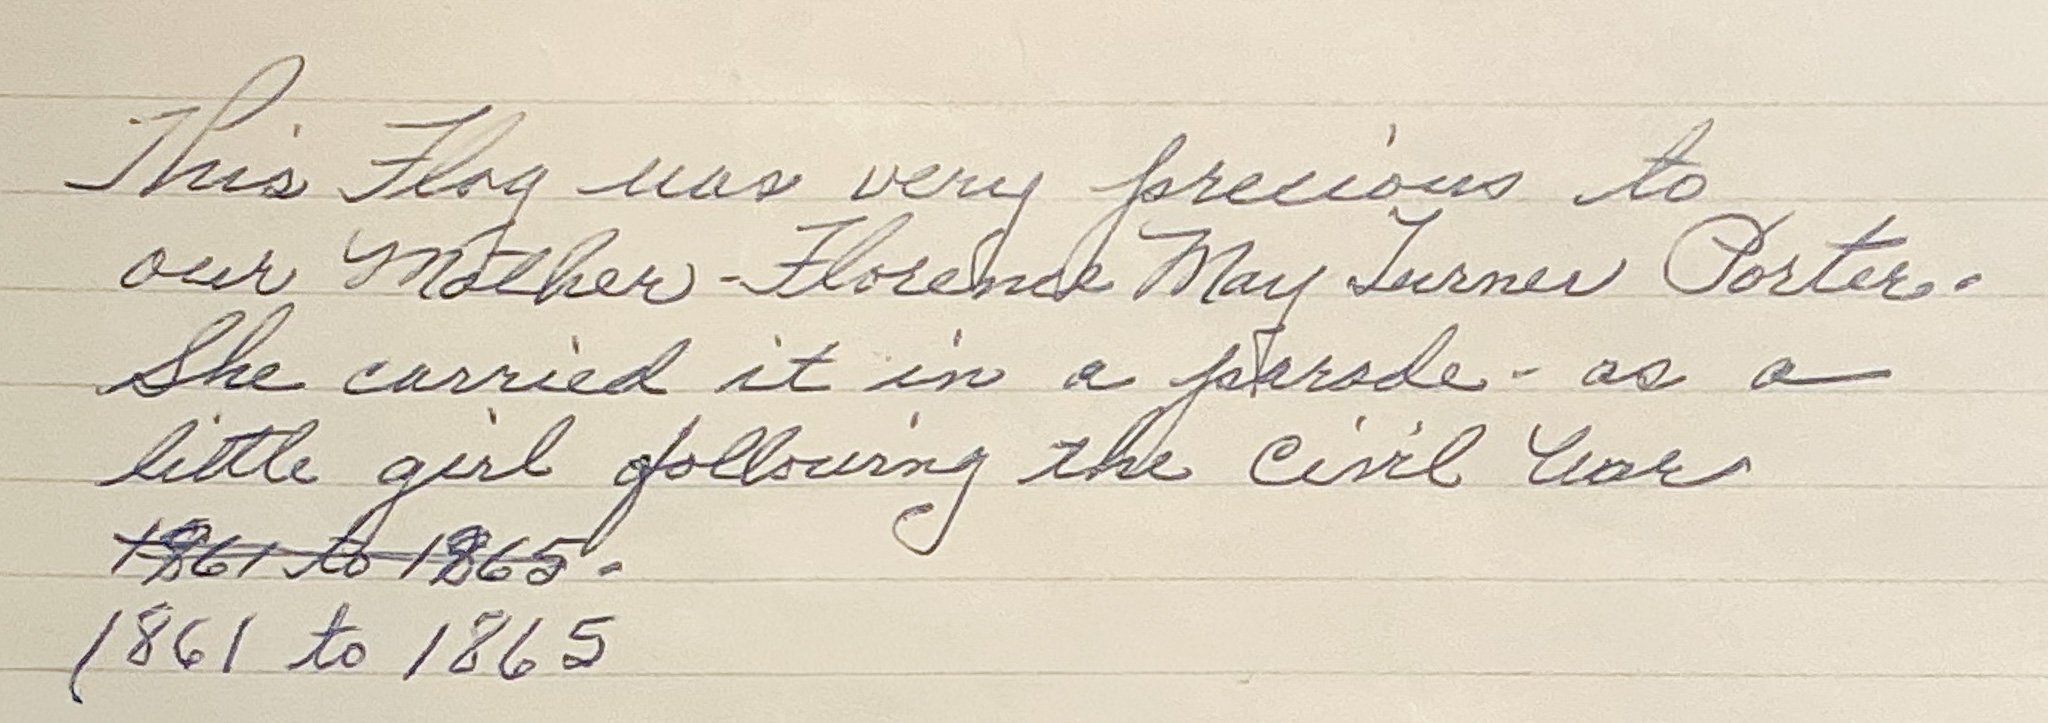 This Flag was very precious to
our Mother - Florence May Turner Porter.
She carried it in a parade - as a
little girl following the Civil War
1861 to 1865.
1861 to 1865